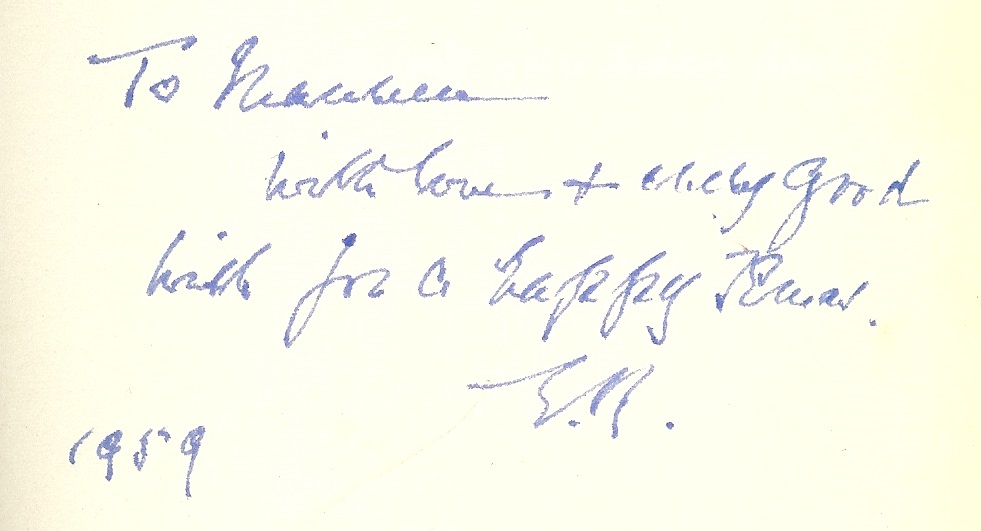 To Maureen
with love + every Good
wish for a happy Xmas.
E.R.
1959